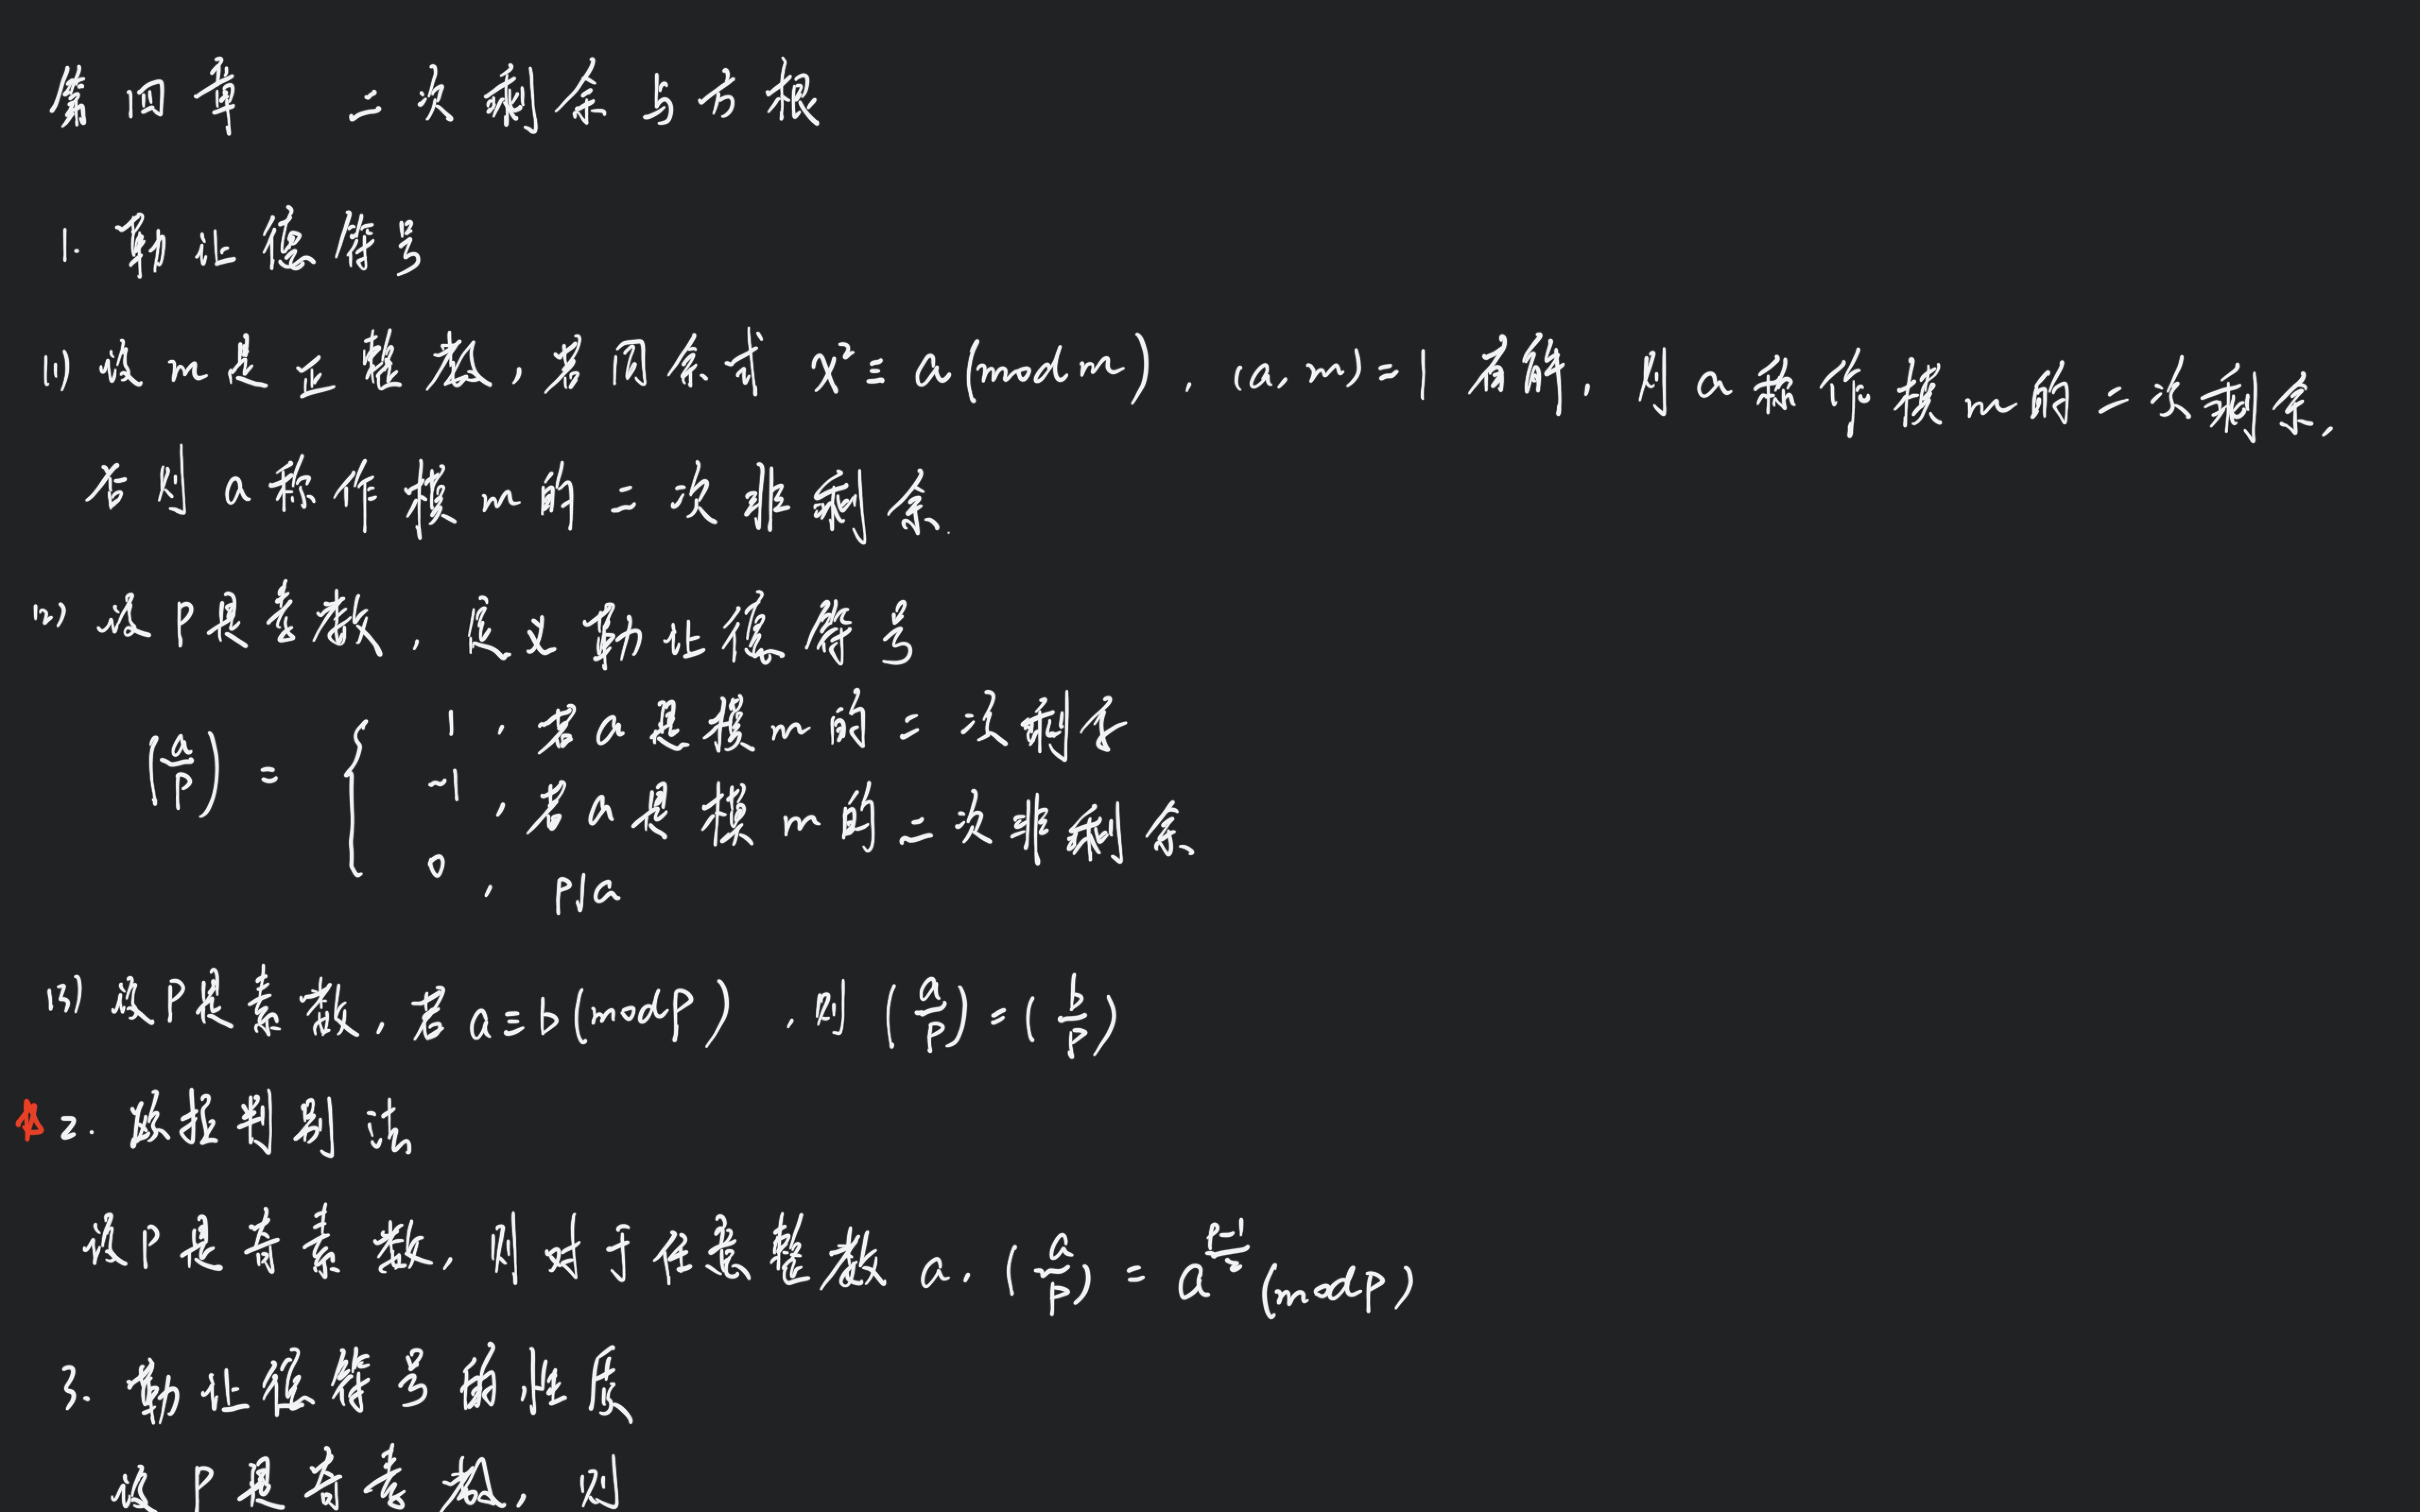 第四章 二次剩余与方根
1. 勒让德符号
(1) 设m是正整数,若同余式 x²≡a(mod m),(a,m)=1 有解,则a称作模m的二次剩余,
否则a称作模m的二次非剩余.
(2) 设P是素数,定义勒让德符号
(a/p) = { 1,若a是模m的二次剩余
-1,若a是模m的二次非剩余
0, p|a
(3) 设P是素数,若a≡b(mod p),则(a/p)=(b/p)
2. 欧拉判别法
设P是奇素数,则对于任意整数a,(a/p)=a^((p-1)/2)(mod p)
3. 勒让德符号的性质
设P是奇素数,则